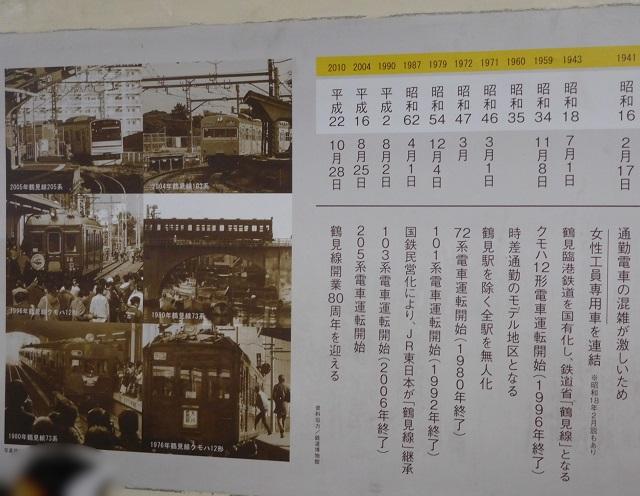 1941
昭和16
2月17日
通勤電車の混雑が激しいため
女性工員専用車を連結 ※昭和18年2月説もあり
1943
昭和18
7月1日
鶴見臨港鉄道を国有化し、鉄道省「鶴見線」となる
1959
昭和34
11月8日
クモハ12形電車運転開始(1996年終了)
1960
昭和35
時差通勤のモデル地区となる
1971
昭和46
3月1日
鶴見駅を除く全駅を無人化
1972
昭和47
3月
72系電車運転開始(1980年終了)
1979
昭和54
12月4日
101系電車運転開始(1992年終了)
1987
昭和62
4月1日
国鉄民営化により、JR東日本が「鶴見線」継承
1990
平成2
8月2日
103系電車運転開始(2006年終了)
2004
平成16
8月25日
205系電車運転開始
2010
平成22
10月28日
鶴見線開業80周年を迎える
資料協力/鉄道博物館
2005年鶴見線205系
2004年鶴見線103系
1996年鶴見線クモハ12形
1980年鶴見線73系
1980年鶴見線73系
1976年鶴見線クモハ12形